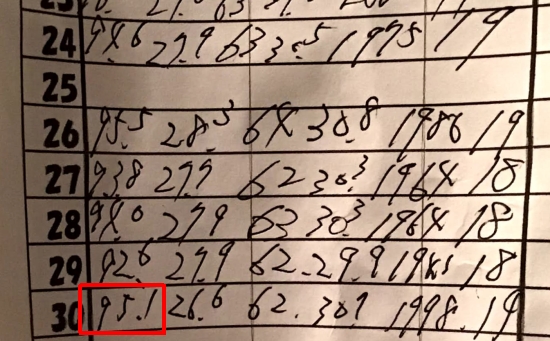 24 94.6 27.9 63 30.5 1975 19
25
26 95.5 28.5 64 30.8 1986 19
27 93.8 27.9 62 30.3 1964 18
28 94.0 27.9 63 30.3 1964 18
29 92.6 27.9 62. 29.9 18
30 95.1 26.6 62. 30.1 1998. 19